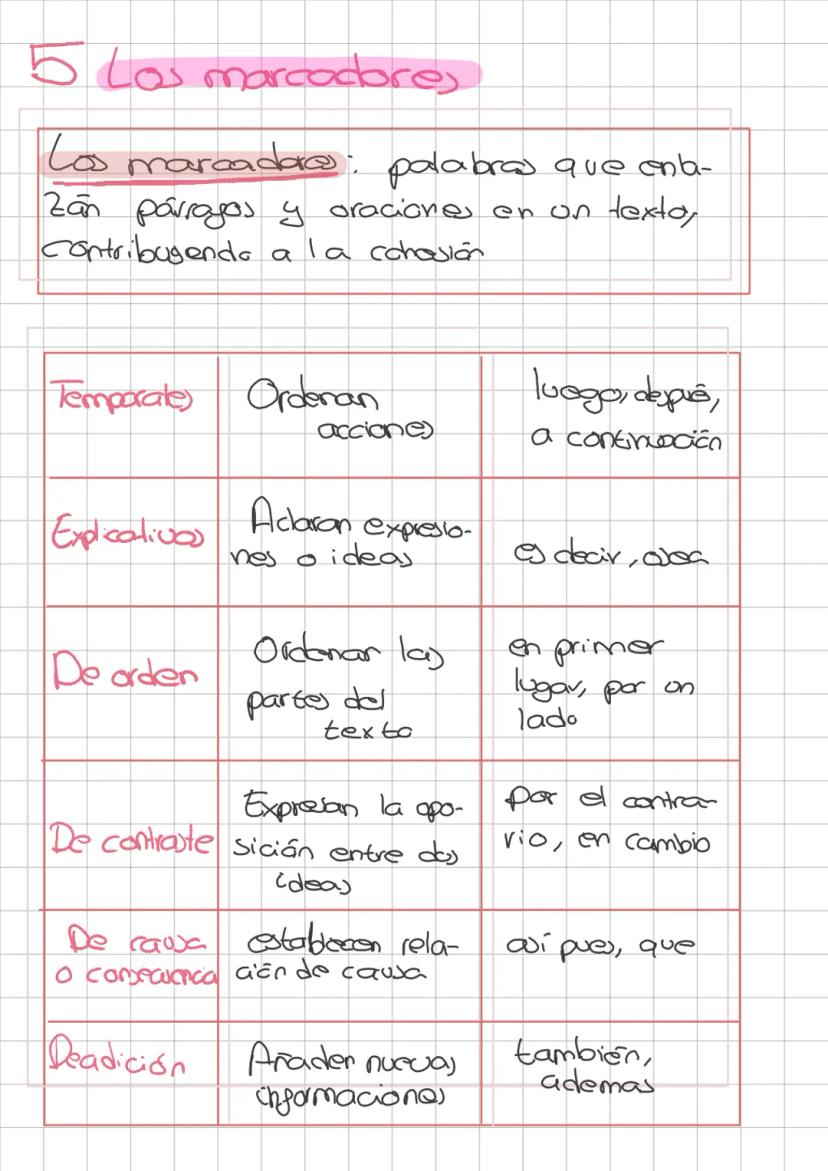 5 Los marcadores
Los marcadores: palabras que enla-
zán párrafos y oraciones en un texto,
contribuyendo a la cohesión
Temporales
Ordenan
acciones
luego, depués,
a continuación
Explicativos
Aclaran expresio-
nes o ideas
es decir, osea
De orden
Ordenar las
partes del
texto
en primer
lugar, por un
lado
De contraste
Expresan la opo-
sición entre dos
ideas
por el contra-
rio, en cambio
De causa
o consecuencia
establecen rela-
ción de causa
así pues, que
De adición
Añaden nuevas
informaciones
también,
ademas